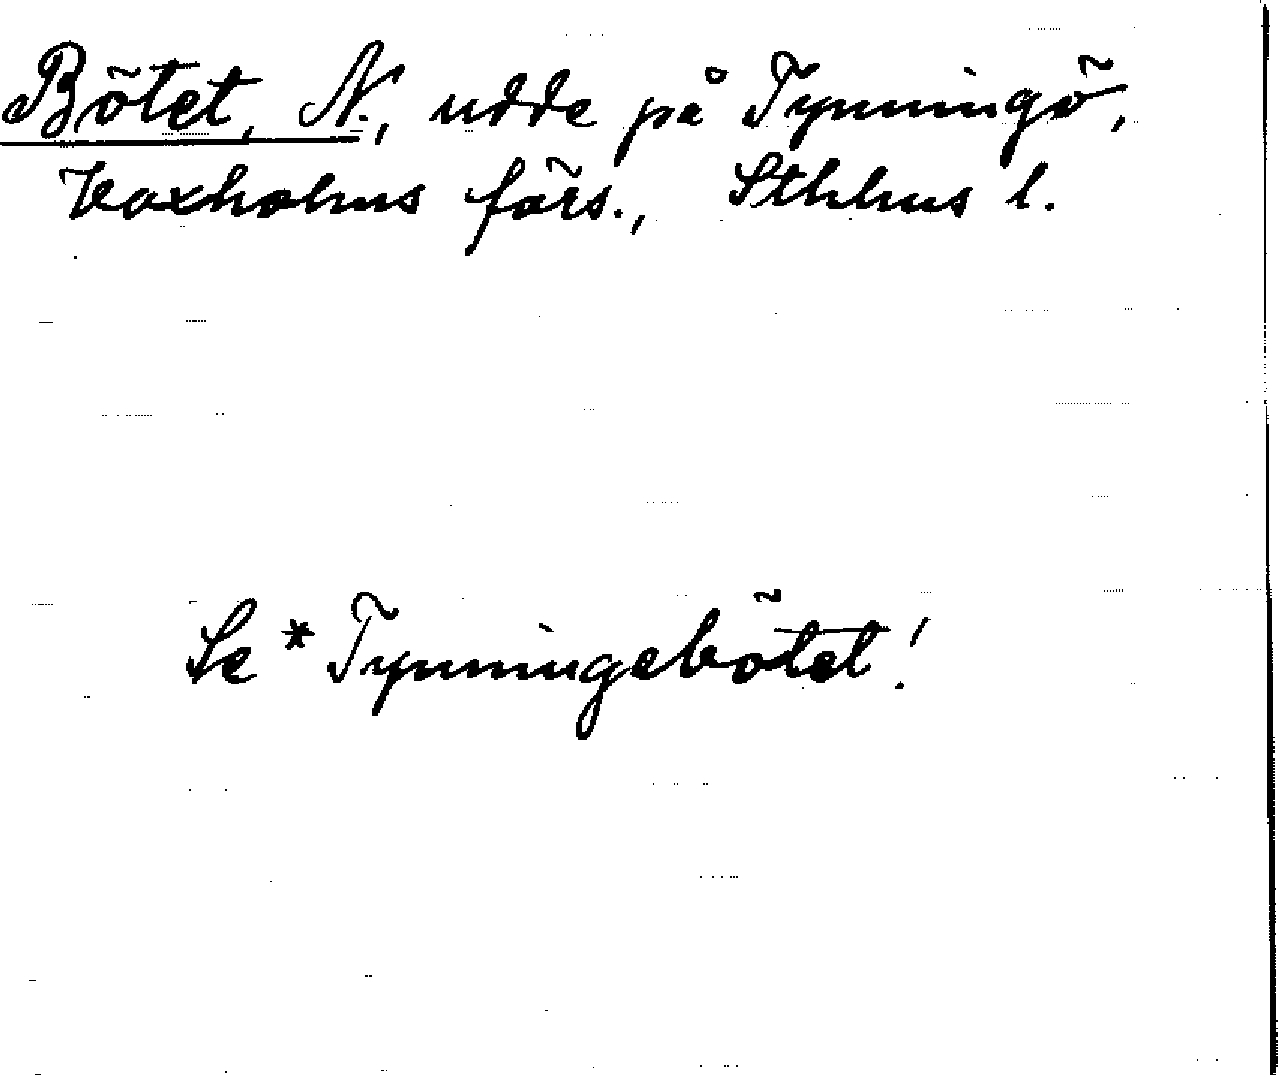 Bötet, N., udde på Tynningö,
Vaxholms förs., Sthlms l.
Se *Tynningebötet!